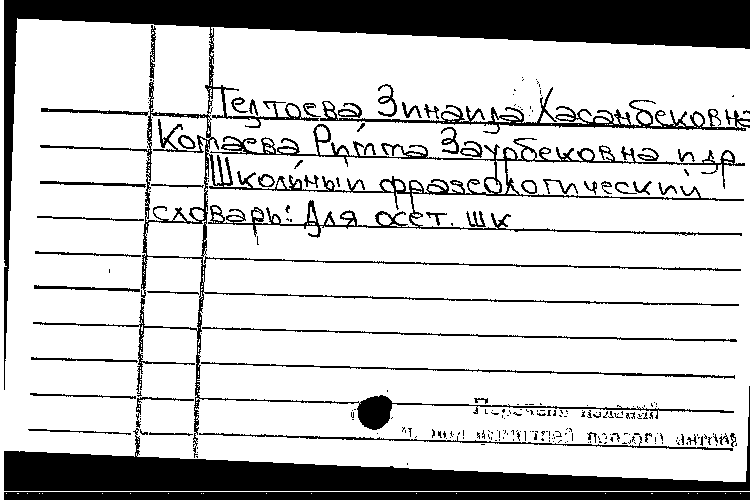 Тедтоева Зинаида Хасанбековна
Котаева Римма Заурбековна и др
Школьный фразеологический
словарь: Для осет. шк
Перечень изданий